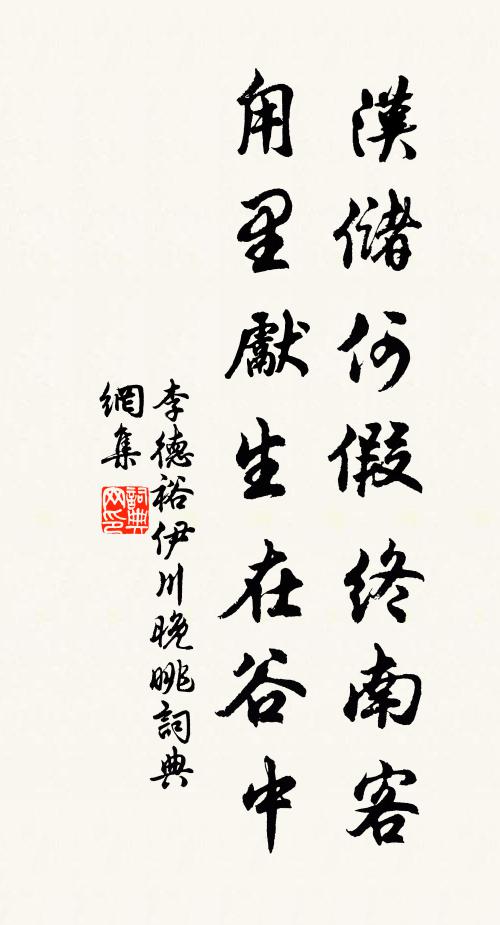 漢儲何假終南客
甪里獻生在谷中
李德裕伊川晚眺詞典
網集
詞典
网印